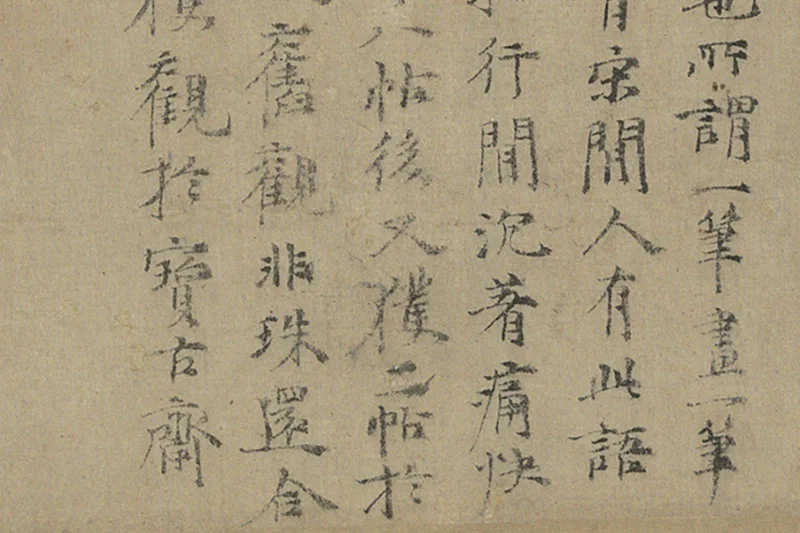 也所謂一筆畫一筆
宋間人有此語
行間沉著痛快
八帖後又獲二帖於
舊觀非珠還合
觀於寶古齋